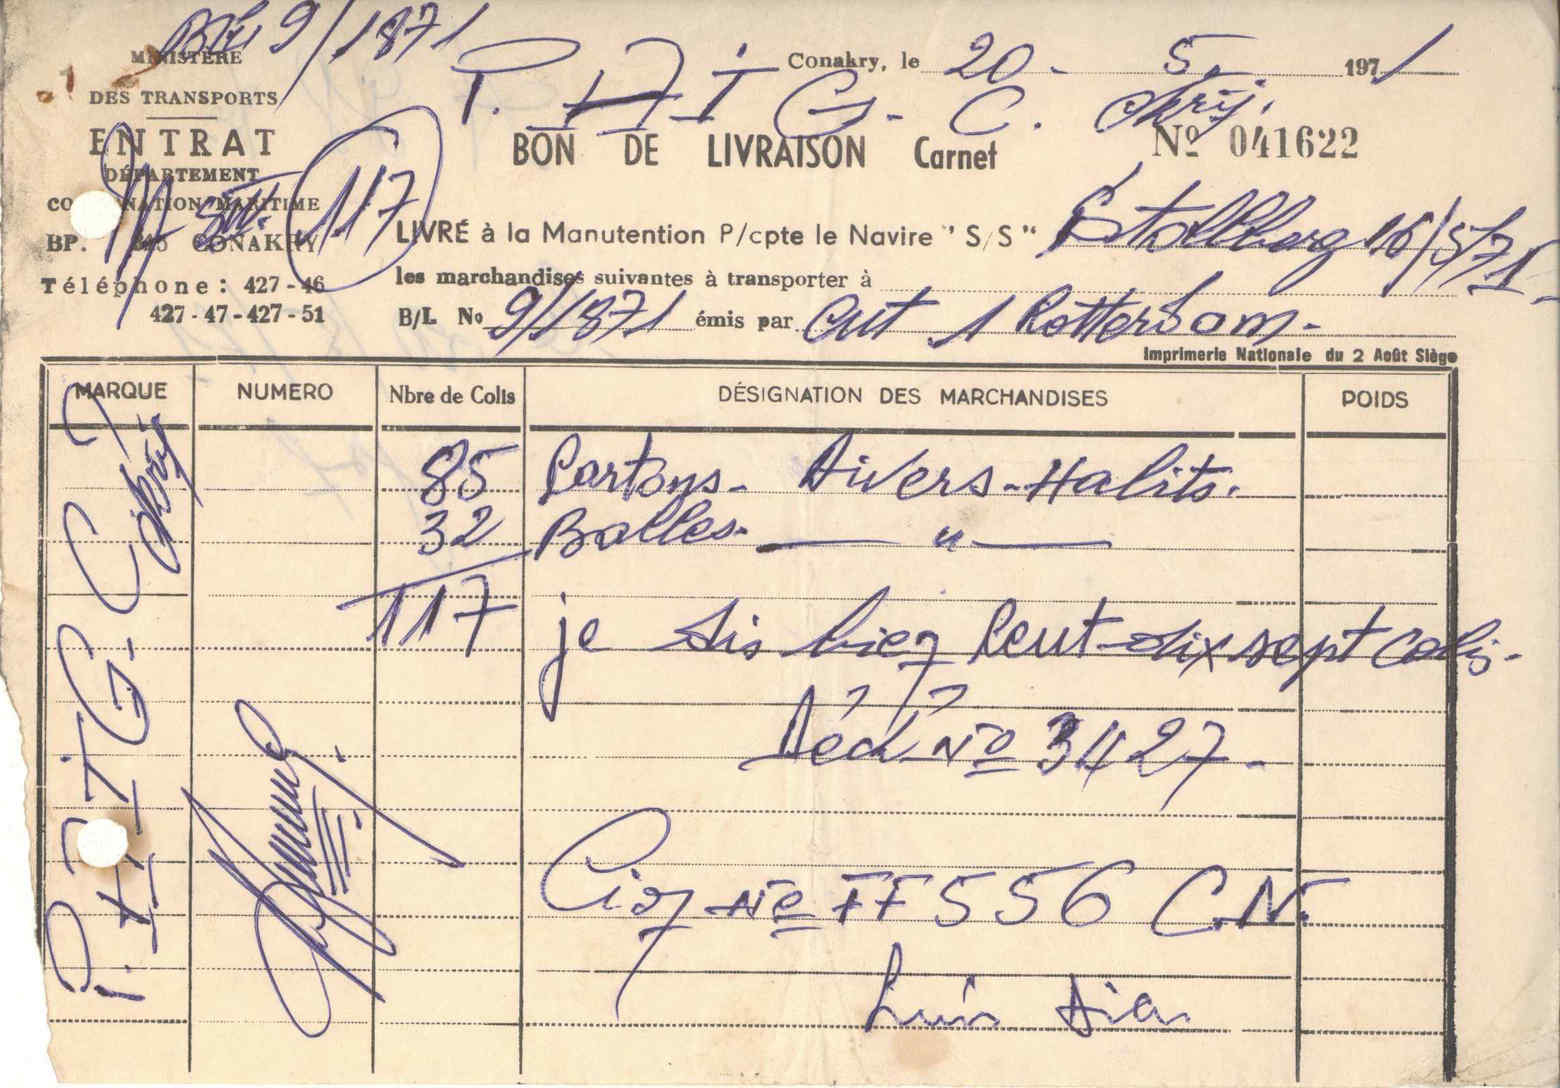 9/1871
MINISTÈRE
DES TRANSPORTS
ENTRAT
DÉPARTEMENT
CONSIGNATION MARITIME
BP. 315 CONAKRY
Téléphone: 427-46
427-47-427-51
117
Conakry, le 20-5-1971
P.A.I.G.C. Ckry.
BON DE LIVRAISON Carnet
Nº 041622
LIVRÉ à la Manutention P/cpte le Navire "S/S" Stollberg 16/5/71
les marchandises suivantes à transporter à
B/L Nº 9/1871 émis par Ant 1 Rotterdam-
Imprimerie Nationale du 2 Août Siège
MARQUE NUMERO Nbre de Colis DÉSIGNATION DES MARCHANDISES POIDS
P.A.I.G.C. Ckry
85 Cartons- Divers-Habits.
32 Balles- "
117 je dis bien Cent-dix sept Colis-
Décl Nº 3427-
Nº FF 556 C.N.